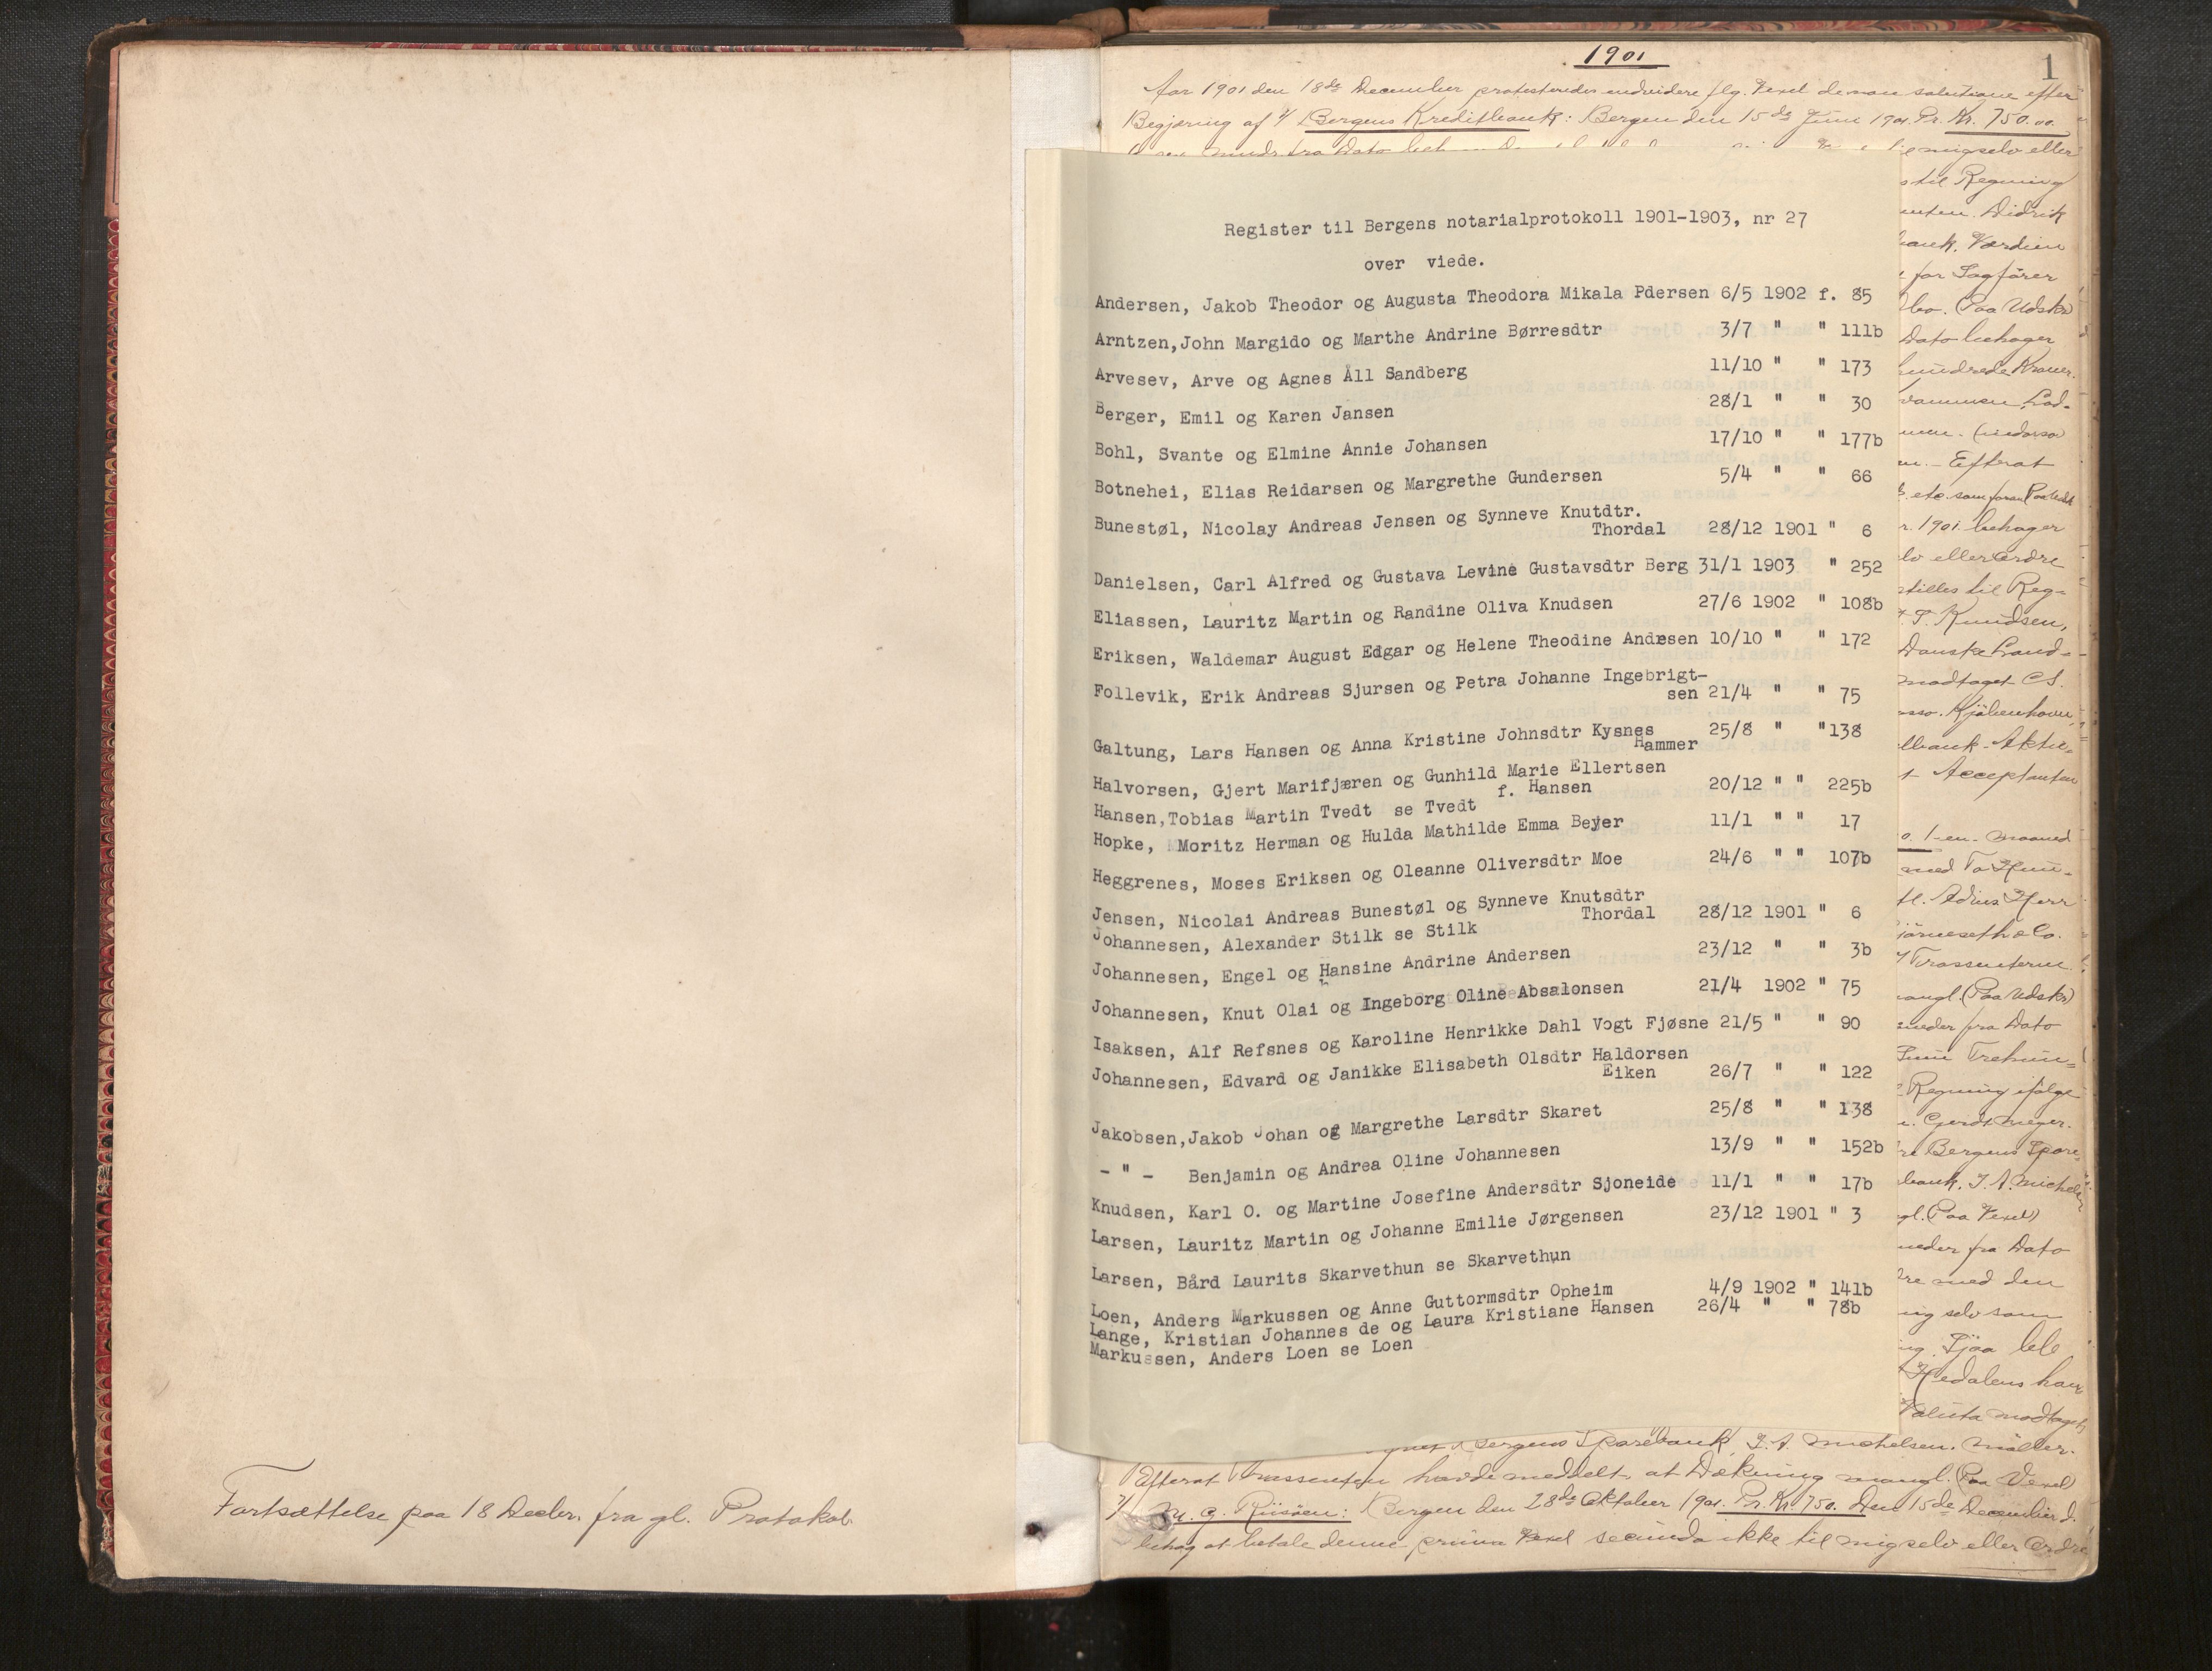 Fortsættelse paa 18 Decbr. fra gl. Protokol.
1901
1
Aar 1901 den 18de December protesteredes endvidere flg. Vexel de non solutione efter
Begjæring af 1/ Bergens Kreditbank: Bergen den 15de Juni 1901. Pr. Kr. 750.00.
mig selv eller
til Regning
Didrik
Værdien
for Sagfører
Paa Udskr
Dato behager
hundrede Kroner.
Efterat
etc. som foran
1901 behager
eller Ordre
stilles til Reg-
T. Knudsen,
Danske Land-
modtaget C.S.
Kjöbenhavn,
Acceptanten
1-en-maaned
med To Hun-
Adviis Herr
& Co.
Trassenterne
mangl. (Paa Udskr)
fra Dato
Trehun-
Regning ifølge
Gerdt Meyer.
Bergens Spare-
bank. J. A. Michelsen
(Paa Vexel)
fra Dato
med den
selv som
Valuta modtaget
Register til Bergens notarialprotokoll 1901-1903, nr 27
over viede.
Andersen, Jakob Theodor og Augusta Theodora Mikala Pdersen 6/5 1902 f. 85
Arntzen,John Margido og Marthe Andrine Børresdtr 3/7 " " 111b
Arvesev, Arve og Agnes Åll Sandberg 11/10 " " 173
Berger, Emil og Karen Jansen 28/1 " " 30
Bohl, Svante og Elmine Annie Johansen 17/10 " " 177b
Botnehei, Elias Reidarsen og Margrethe Gundersen 5/4 " " 66
Bunestøl, Nicolay Andreas Jensen og Synneve Knutdtr.
Thordal 28/12 1901 " 6
Danielsen, Carl Alfred og Gustava Levine Gustavsdtr Berg 31/1 1903 " 252
Eliassen, Lauritz Martin og Randine Oliva Knudsen 27/6 1902 " 108b
Eriksen, Waldemar August Edgar og Helene Theodine Andresen 10/10 " " 172
Follevik, Erik Andreas Sjursen og Petra Johanne Ingebrigt-
sen 21/4 " " 75
Galtung, Lars Hansen og Anna Kristine Johnsdtr Kysnes 25/8 " "138
Hammer
Halvorsen, Gjert Marifjæren og Gunhild Marie Ellertsen
f. Hansen 20/12 " " 225b
Hansen,Tobias Martin Tvedt se Tvedt
Hopke, Moritz Herman og Hulda Mathilde Emma Beyer 11/1 " " 17
Heggrenes, Moses Eriksen og Oleanne Oliversdtr Moe 24/6 " " 107b
Jensen, Nicolai Andreas Bunestøl og Synneve Knutsdtr
Thordal 28/12 1901 " 6
Johannesen, Alexander Stilk se Stilk
Johannesen, Engel og Hansine Andrine Andersen 23/12 " " 3b
Johannesen, Knut Olai og Ingeborg Oline Absalonsen 21/4 1902 " 75
Isaksen, Alf Refsnes og Karoline Henrikke Dahl Vogt Fjøsne 21/5 " " 90
Johannesen, Edvard og Janikke Elisabeth Olsdtr Haldorsen
Eiken 26/7 " " 122
Jakobsen,Jakob Johan og Margrethe Larsdtr Skaret 25/8 " " 138
- " - Benjamin og Andrea Oline Johannesen 13/9 " " 152b
Knudsen, Karl O. og Martine Josefine Andersdtr Sjoneide 11/1 " " 17b
Larsen, Lauritz Martin og Johanne Emilie Jørgensen 23/12 1901 " 3
Larsen, Bård Laurits Skarvethun se Skarvethun
Loen, Anders Markussen og Anne Guttormsdtr Opheim 4/9 1902 " 141b
Lange, Kristian Johannes de og Laura Kristiane Hansen 26/4 " " 78b
Markussen, Anders Loen se Loen
Bergens Sparebank, J. A. Michelsen. Müller.
Efterat Trassenten havde meddelt, at Dækning mangl. (Paa Vexel)
7/ M. G. Riisöen: Bergen den 28de Oktober 1901. Pr. Kr 750. Den 15de December d.
behag at betale denne prima Vexel secunda ikke til mig selv eller Ordre